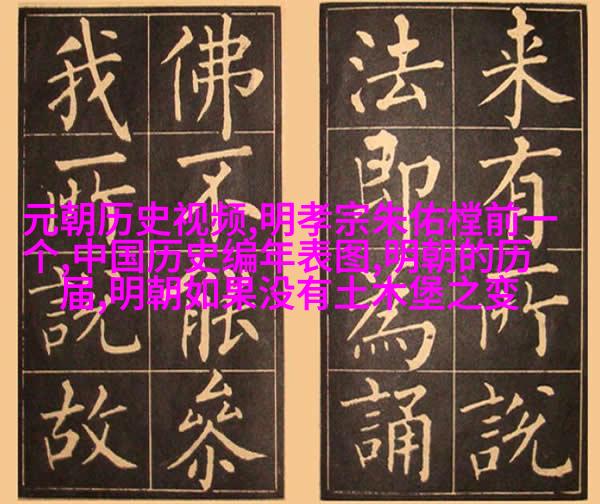 元朝历史视频,明孝宗朱佑樘前一
个,中国历史编年表图,明朝的历
届,明朝如果没有土木堡之变
来有所說
法即為誦
佛不能參
我所說故